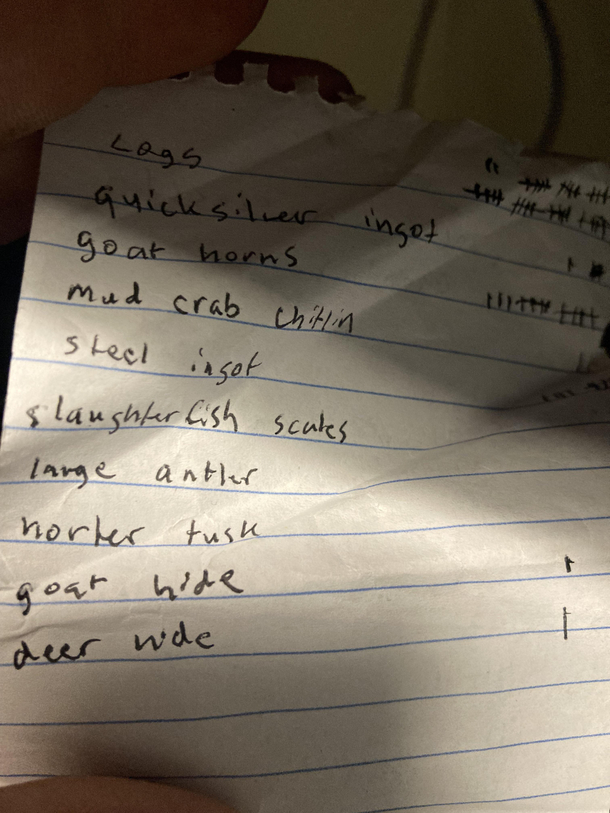 Logs
quicksilver ingot
goat horns
mud crab chitlin
steel ingot
slaughterfish scales
large antler
horker tusk
goat hide
deer hide